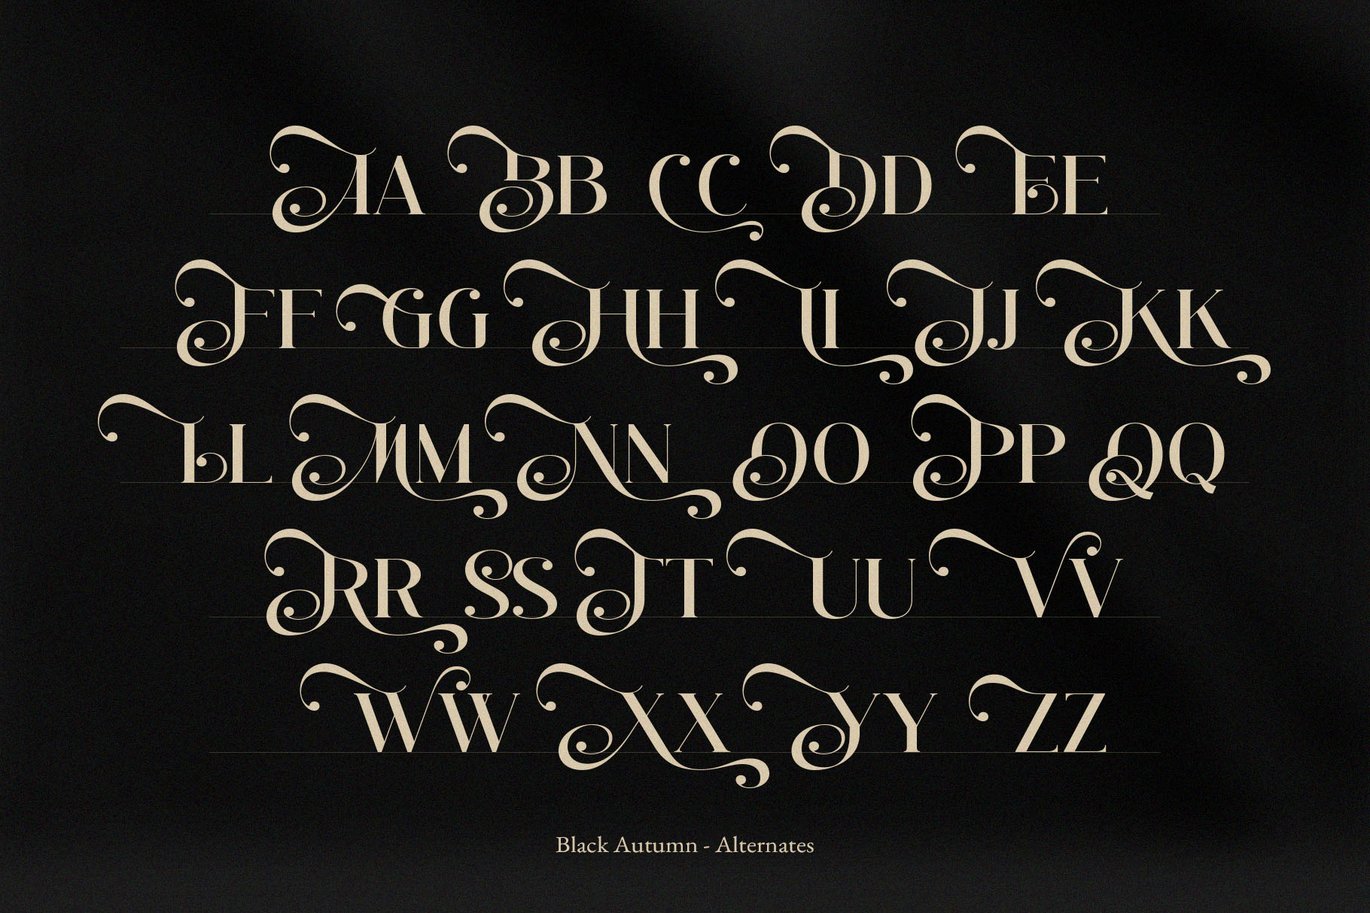 AA BB CC DD EE
FF GG HH II JJ KK
LL MM NN OO PP QQ
RR SS TT UU VV
WW XX YY ZZ
Black Autumn - Alternates